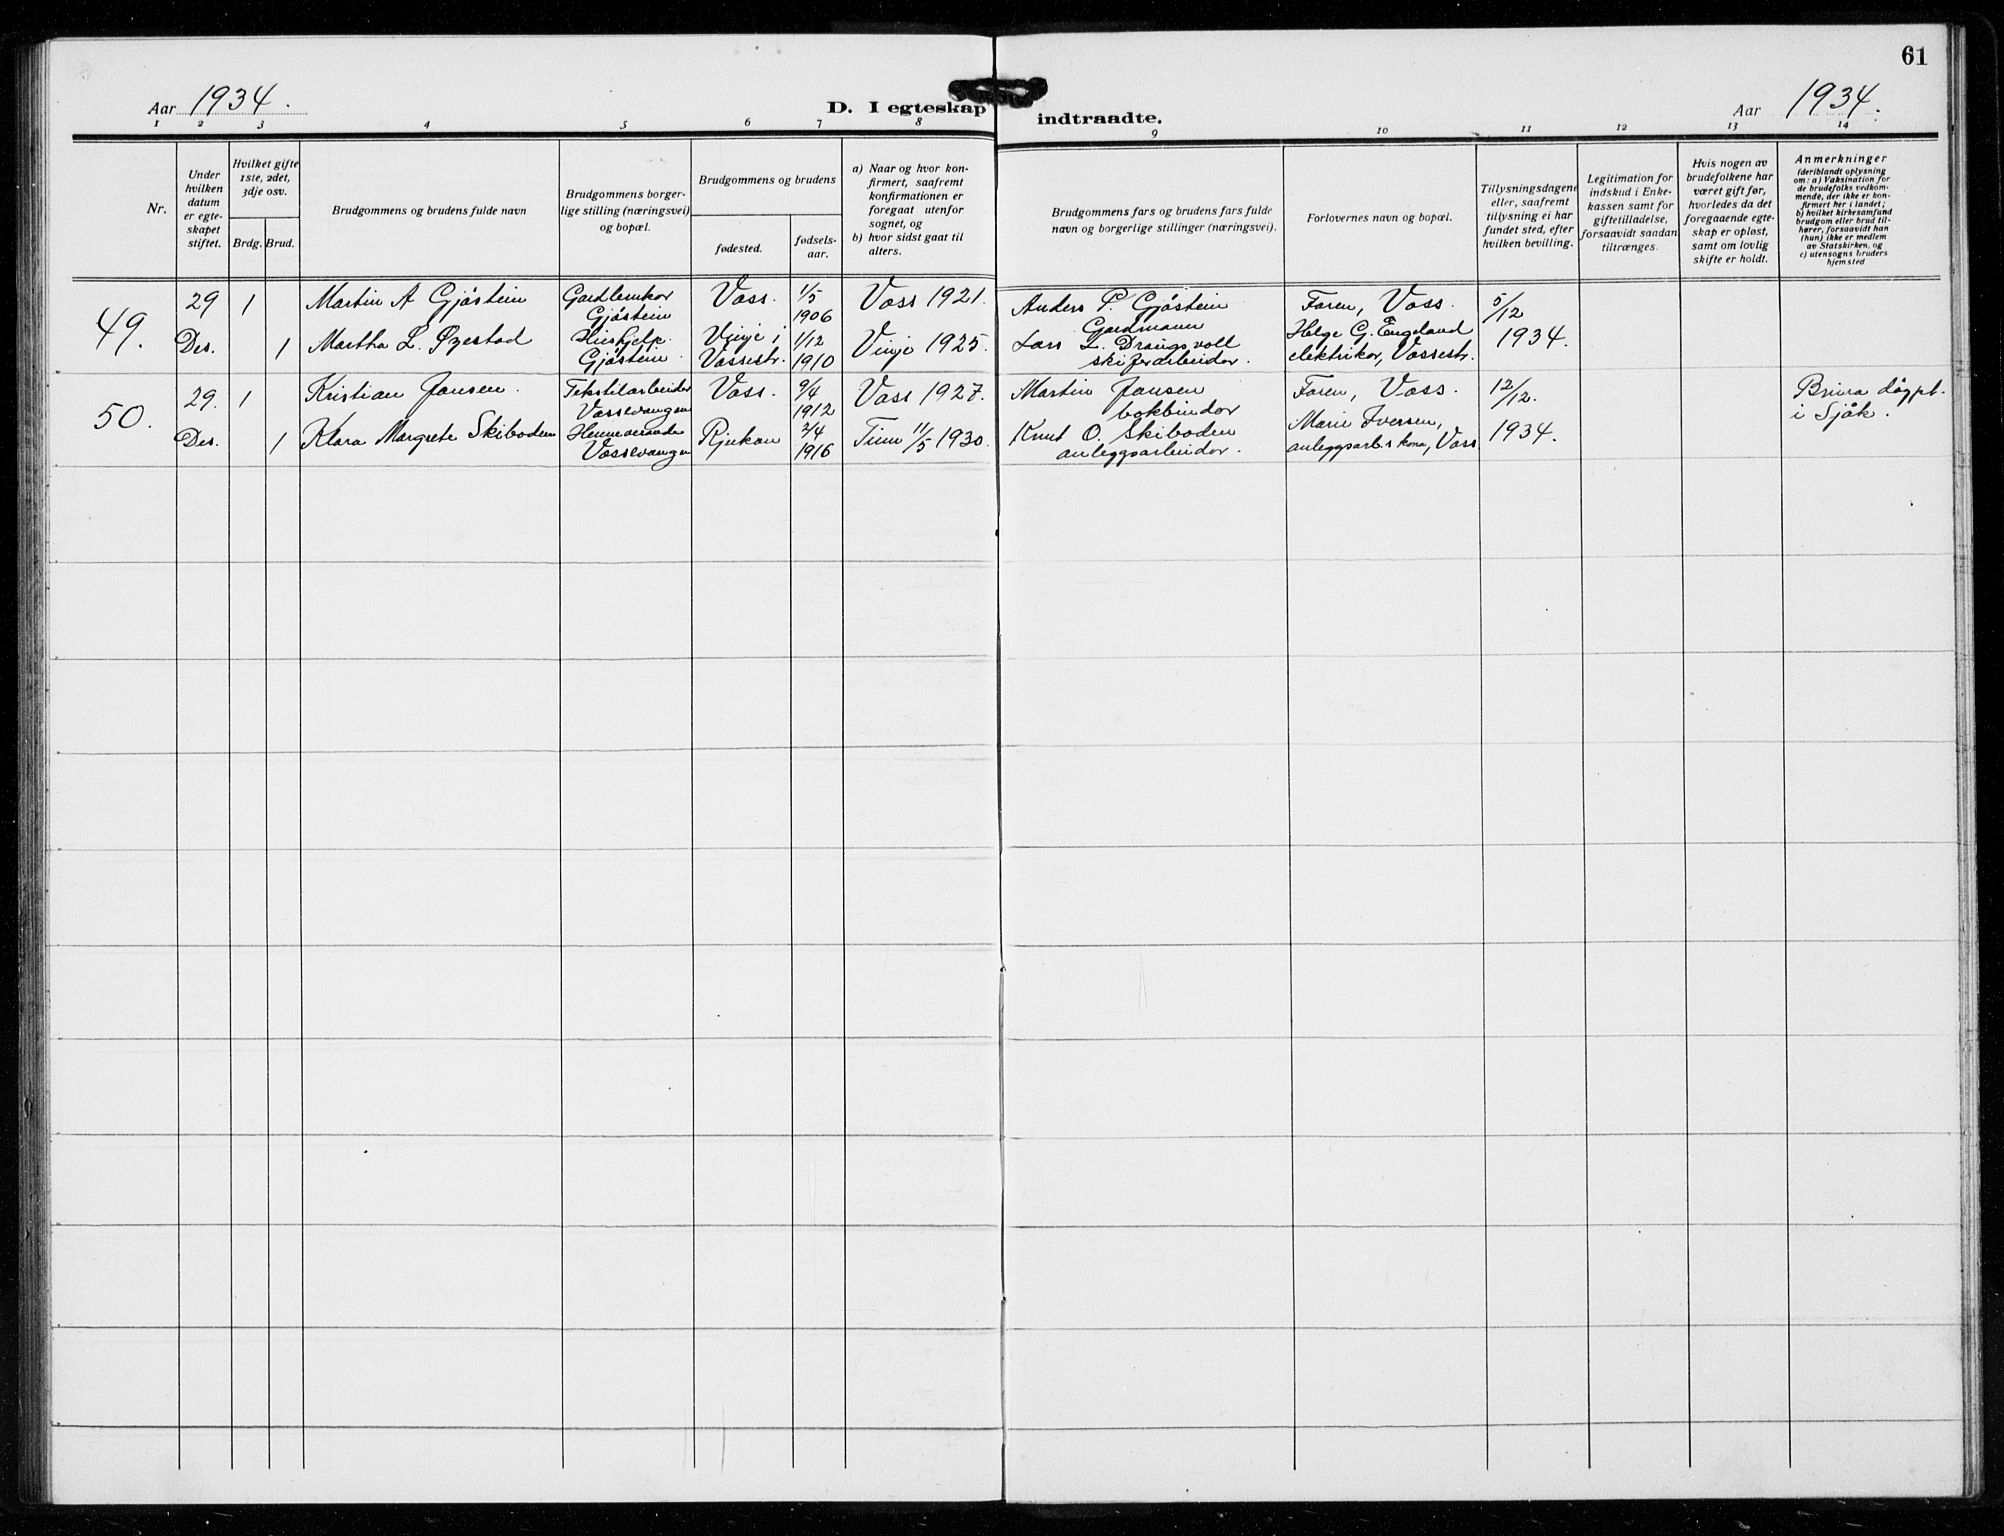 61
Aar 1934.
D. I egteskap indtraadte.
Aar 1934.
1 2 3 4 5 6 7 8 9 10 11 12 13 14
Nr.
Under
hvilken
datum
er egte-
skapet
stiftet.
Hvilket gifte
1ste, 2det,
3dje osv.
Brdg. Brud.
Brudgommens og brudens fulde navn
Brudgommens borger-
lige stilling (næringsvei)
og bopæl.
Brudgommens og brudens
fødested.
fødsels-
aar.
a) Naar og hvor kon-
firmert, saafremt
konfirmationen er
foregaat utenfor
sognet, og
b) hvor sidst gaat til
alters.
Brudgommens fars og brudens fars fulde
navn og borgerlige stillinger (næringsvei).
Forlovernes navn og bopæl.
Tillysningsdagene
eller, saafremt
tillysning ei har
fundet sted, efter
hvilken bevilling.
Legitimation for
indskud i Enke-
kassen samt for
giftetilladelse,
forsaavidt saadan
tiltrænges.
Hvis nogen av
brudefolkene har
været gift før,
hvorledes da det
foregaaende egte-
skap er opløst,
samt om lovlig
skifte er holdt.
Anmerkninger
(deriblandt oplysning
om: a) Vaksination for
de brudefolks vedkom-
mende, der ikke er kon-
firmert her i landet;
b) hvilket kirkesamfund
brudgom eller brud til-
hører, forsaavidt han
(hun) ikke er medlem
av Statskirken, og
c) utensogns bruders
hjemsted
49.
29 1 Martin A Gjøstein
Gjøstein
Voss. 1/5
1906
Voss 1921.
Anders P. Gjøstein
Gardmann
Faren, Voss.
5/12
Des. 1 Martha L. Øzestad
Hushjelp
Gjøstein.
Vinje i
Vossestr.
1/12
1910
Vinje 1925.
Lars L. Drangsvoll
skiferarbeider.
Helge G. Engeland
elektriker, Vossestr.
1934.
50.
29. 1 Kristian Jansen.
Tekstilarbeider
Vossevangen
Voss. 9/4
1912
Voss 1927.
Martin Jansen
bokbinder
Faren, Voss.
12/12.
Brura døypt
i Sjåk.
Des. 1 Klara Margrete Skiboden
Heimeverande
Vossevangen
Rjukan 2/4
1916
Tinn 11/5 1930.
Knut O. Skiboden
anleggsarbeider.
Marie Iversen,
anleggsarb.s kona, Voss
1934.